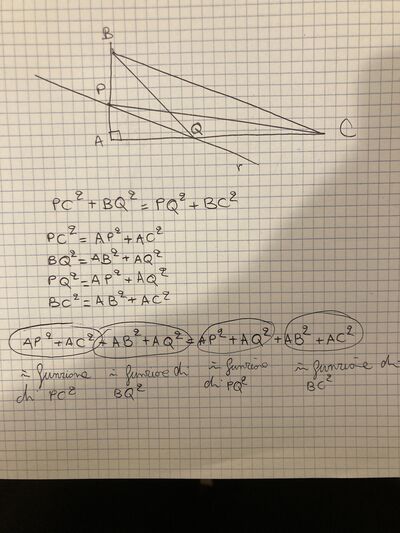 B
P
A
Q
C
r
PC² + BQ² = PQ² + BC²
PC² = AP² + AC²
BQ² = AB² + AQ²
PQ² = AP² + AQ²
BC² = AB² + AC²
AP² + AC² + AB² + AQ² = AP² + AQ² + AB² + AC²
in funzione di PC²
in funzione di BQ²
in funzione di PQ²
in funzione di BC²